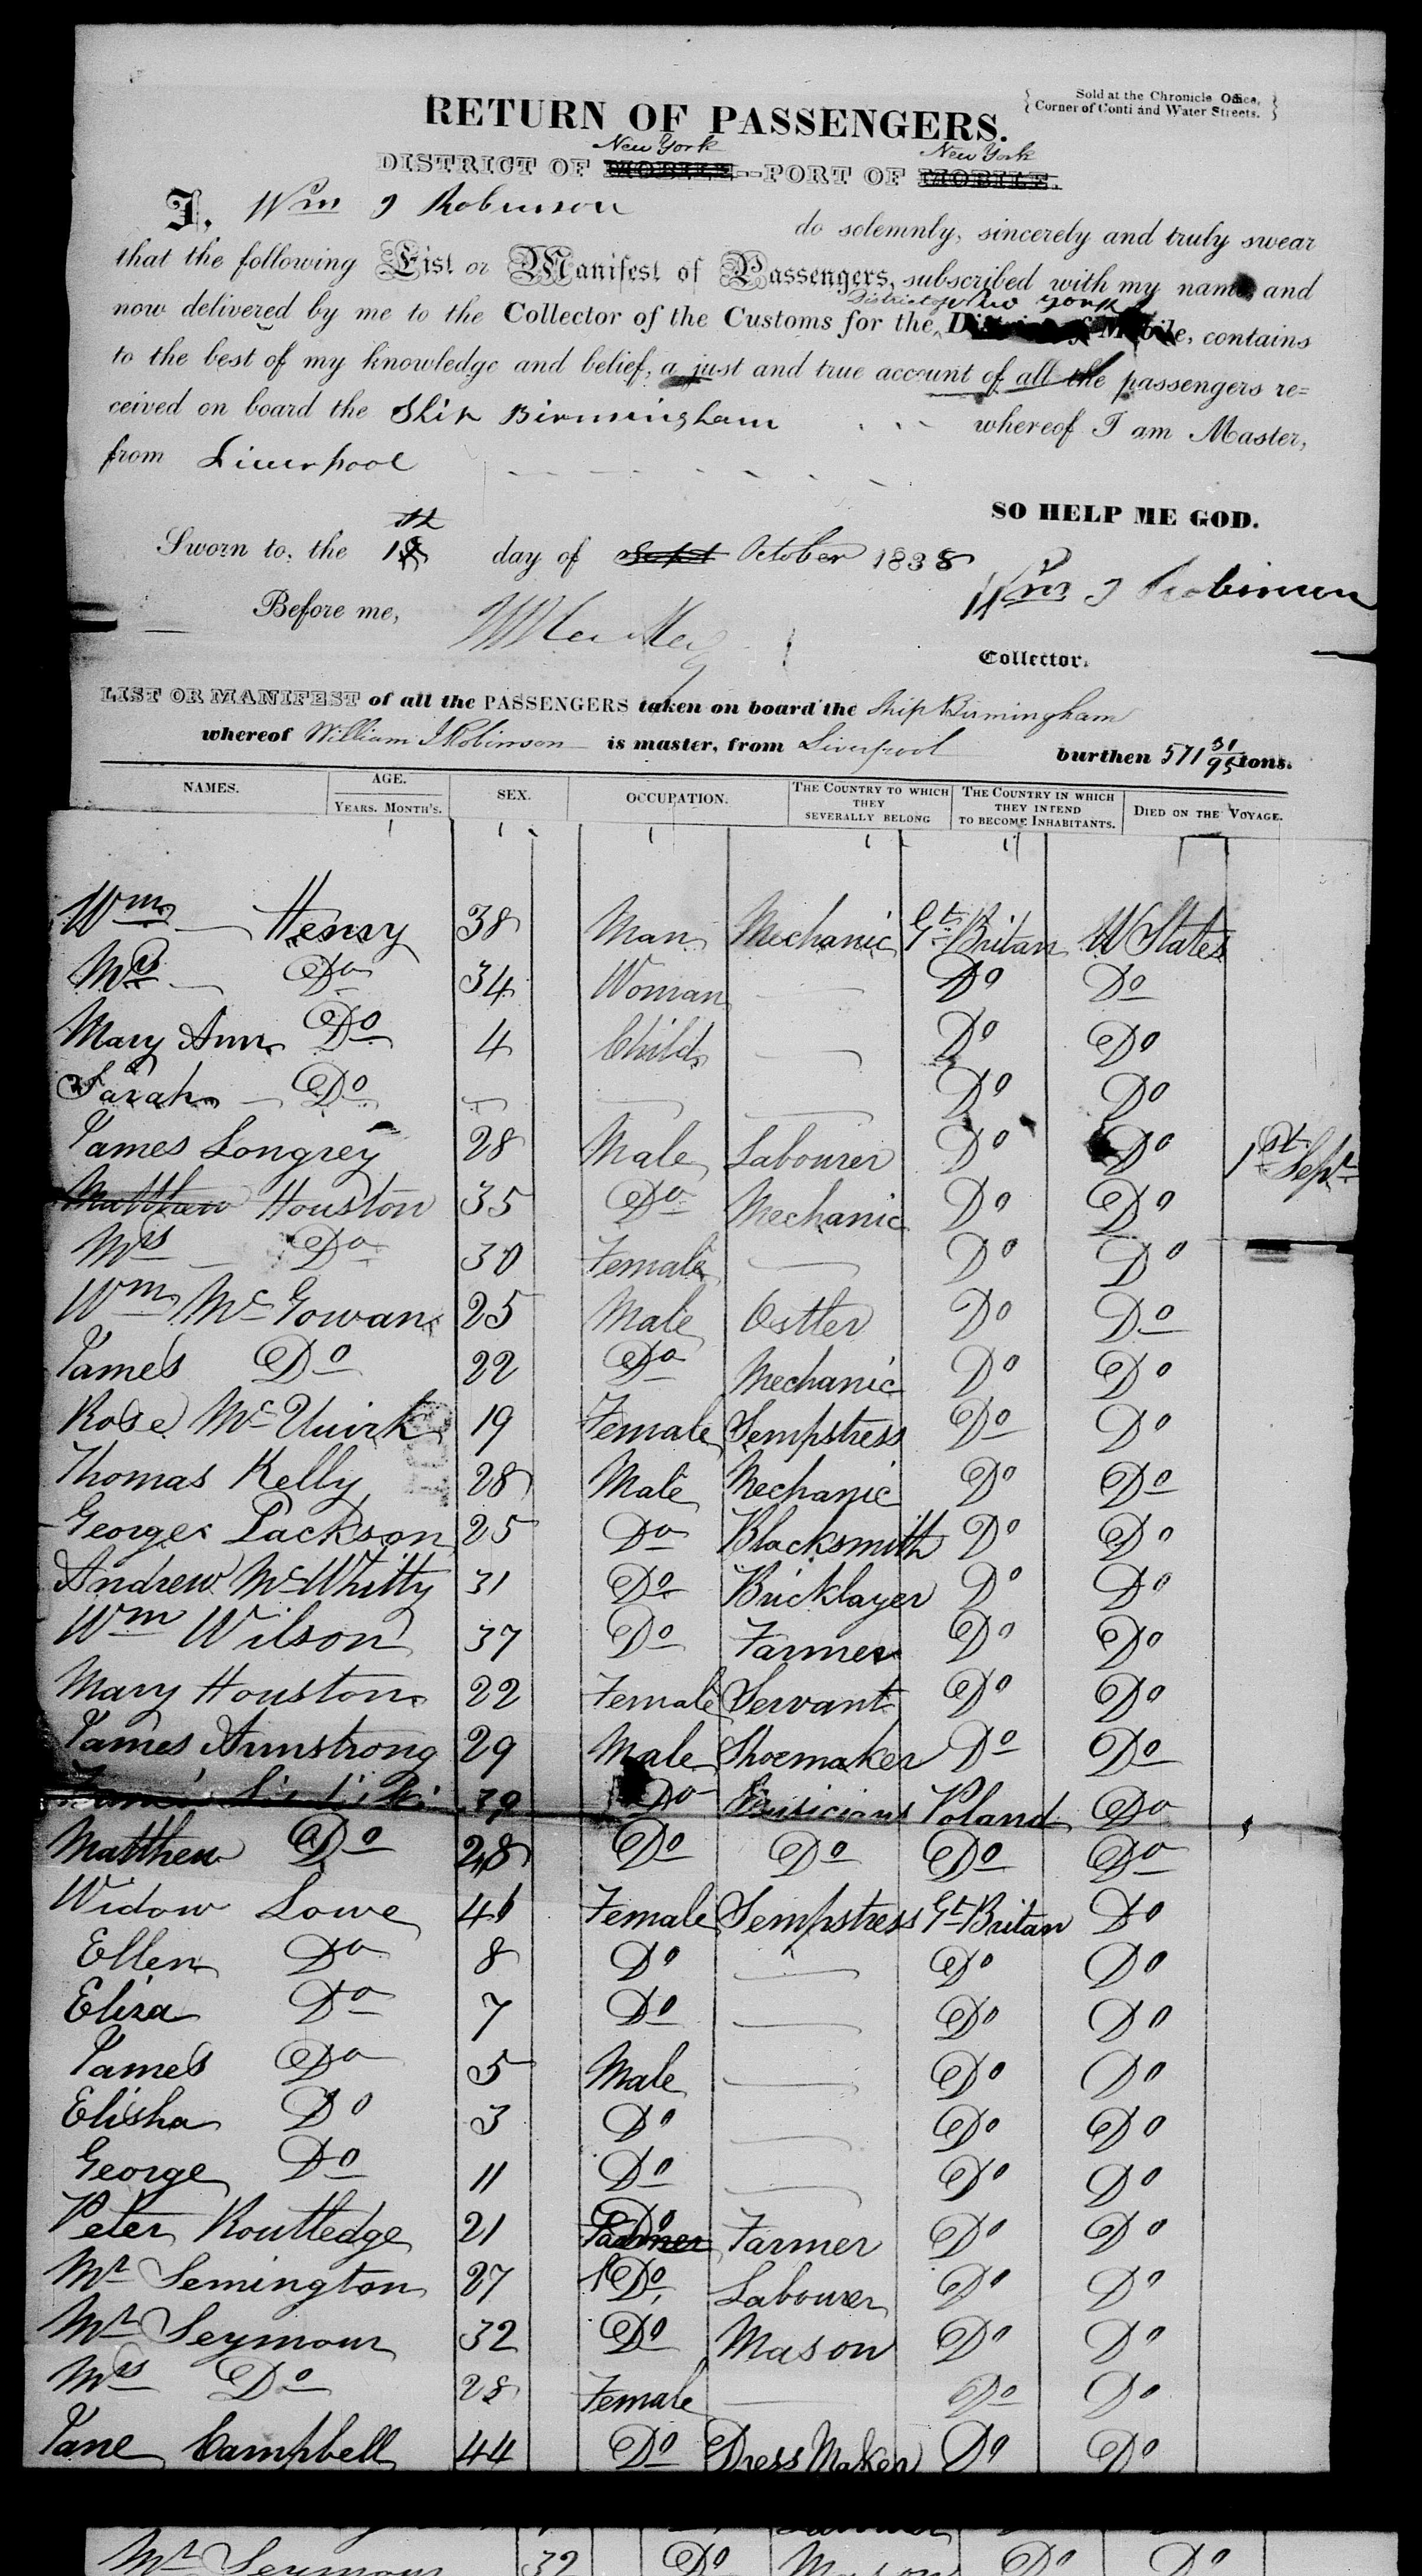 Sold at the Chronicle Office,
Corner of Conti and Water Streets.
RETURN OF PASSENGERS.
New York New York
DISTRICT OF MOBILE--PORT OF MOBILE.
I, Wm J Robinson do solemnly, sincerely and truly swear
that the following List or Manifest of Passengers, subscribed with my name, and
District of New York
now delivered by me to the Collector of the Customs for the District of Mobile, contains
to the best of my knowledge and belief, a just and true account of all the passengers re=
ceived on board the Ship Birmingham whereof I am Master,
from Liverpool
SO HELP ME GOD.
Sworn to, the 18 th day of Sept October 1838
Wm J Robinson
Before me,
Collector.
LIST OR MANIFEST of all the PASSENGERS taken on board the Ship Birmingham
whereof William J Robinson is master, from Liverpool burthen 571 31/95 tons.
NAMES. AGE. YEARS. MONTH'S. SEX. OCCUPATION. THE COUNTRY TO WHICH THEY SEVERALLY BELONG THE COUNTRY IN WHICH THEY INTEND TO BECOME INHABITANTS. DIED ON THE VOYAGE.
Wm Henry 38 Man Mechanic Gt Britan U States
Mrs Do 34 Woman — Do Do
Mary Ann Do 4 Child — Do Do
Sarah Do — — — Do Do
James Longrey 28 Male Labourer Do Do 1st Sept
Matthew Houston 35 Do Mechanic Do Do
Mrs Do 30 Female — Do Do
Wm McGowan 25 Male Ostler Do Do
James Do 22 Do Mechanic Do Do
Rose McQuirk 19 Female Sempstress Do Do
Thomas Kelly 28 Male Mechanic Do Do
George Jackson 25 Do Blacksmith Do Do
Andrew McWhitty 31 Do Bricklayer Do Do
Wm Wilson 37 Do Farmer Do Do
Mary Houston 22 Female Servant Do Do
James Armstrong 29 Male Shoemaker Do Do
39 Do Musicians Poland Do
Matthew Do 28 Do Do Do Do
Widow Lowe 46 Female Sempstress Gt Britan Do
Ellen Do 8 Do — Do Do
Eliza Do 7 Do — Do Do
James Do 5 Male — Do Do
Elisha Do 3 Do — Do Do
George Do 11 Do — Do Do
Peter Routledge 21 Farmer Do Farmer Do Do
Mr Semington 27 Do Labourer Do Do
Mr Seymour 32 Do Mason Do Do
Mrs Do 28 Female — Do Do
Jane Campbell 44 Do Dress Maker Do Do
Mr Seymour 32 Do Mason Do Do